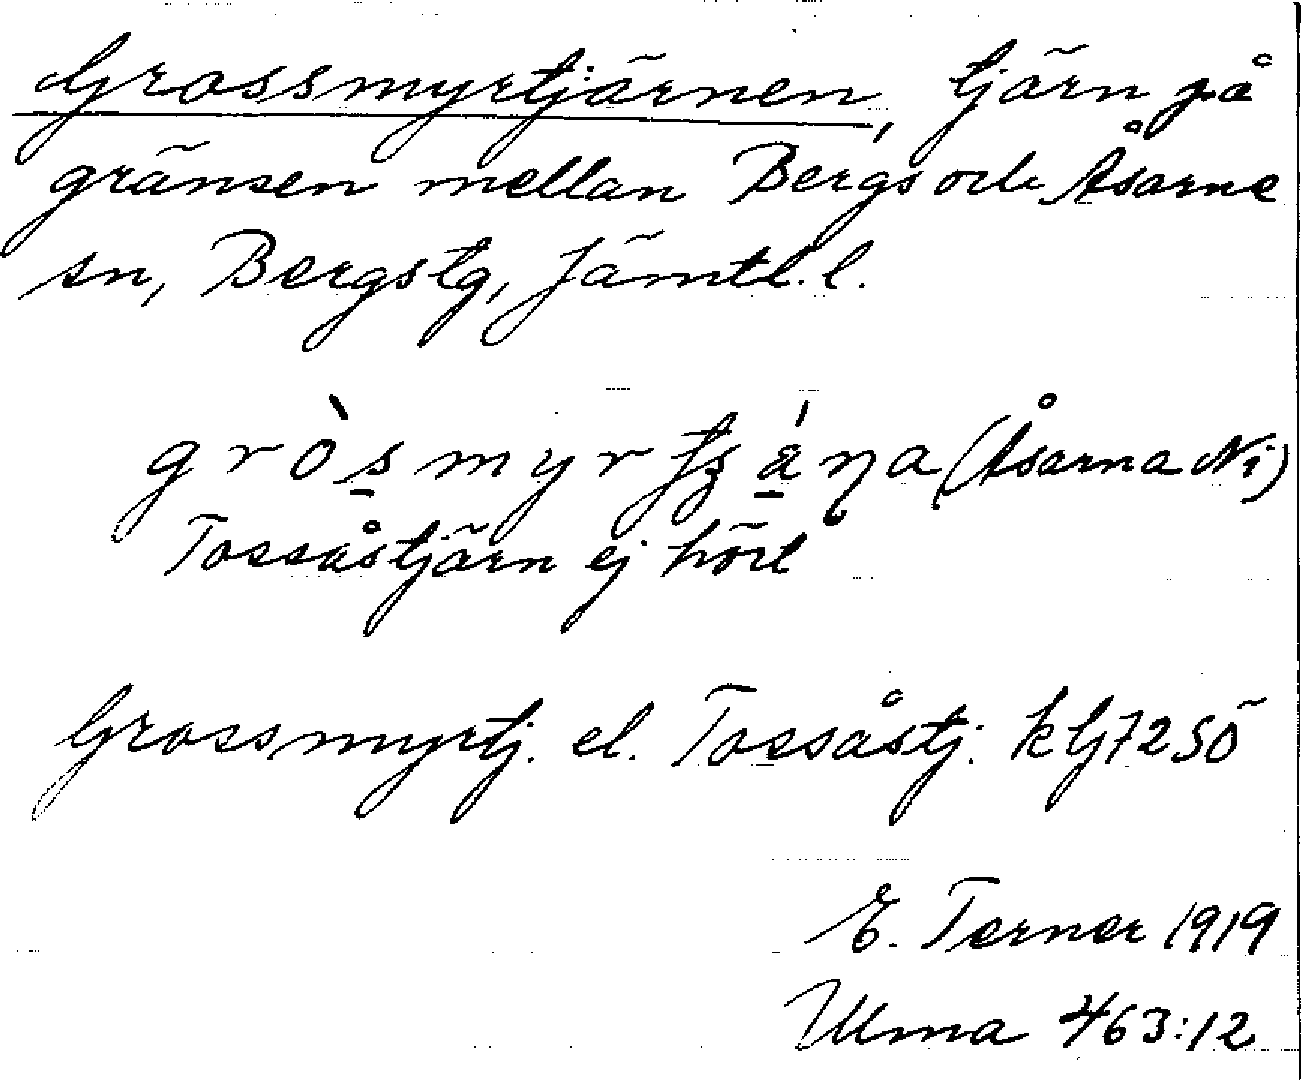 Grossmyrtjärnen, tjärn på
gränsen mellan Bergs och Åsarne
sn, Bergs tg, Jämtl. l.
gròsmyrtʒána (Åsarna Ni)
Tossåstjärn ej hört
Grossmyrtj. el. Tossåstj. kbl 72 SÖ
E. Terner 1919
Ulma 463:12